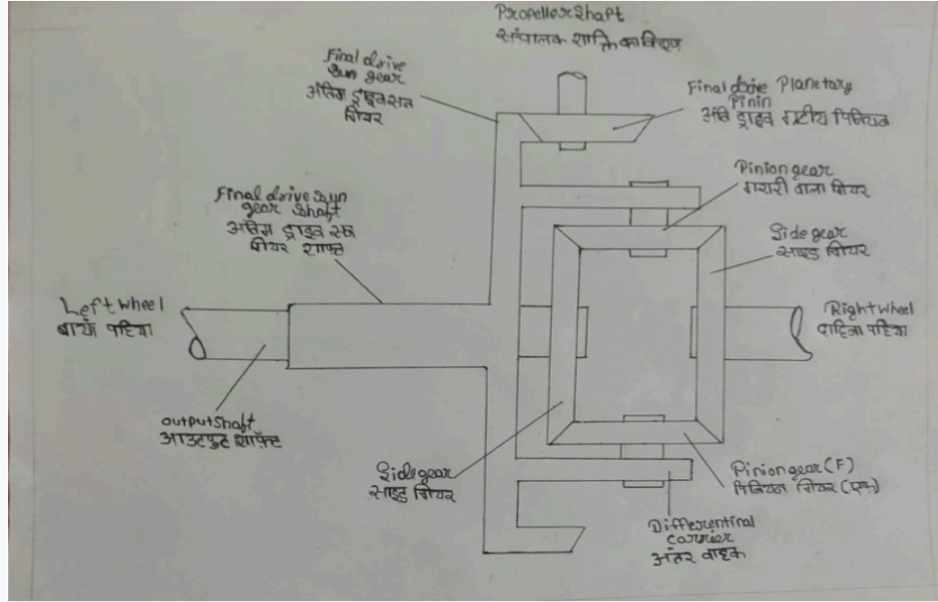 Propeller Shaft
संचालक शाक्ति का विवरण
Final drive
Sun gear
अंतिम ड्राइव सन
गियर
Final drive Planetary
Pinin
अंति ड्राइव ग्रहीय पिनियन
Pinion gear
गरारी वाला गियर
Final drive Sun
gear shaft
अंतिम ड्राइव सन
गियर शाफ्ट
Side gear
साइड गियर
Left wheel
बायाँ पहिया
Right wheel
दाहिना पहिया
output shaft
आउटपुट शाफ़्ट
Side gear
साइड गियर
Pinion gear (F)
पिनियन गियर (एफ)
Differentinal
carrier
अंतर वाहक